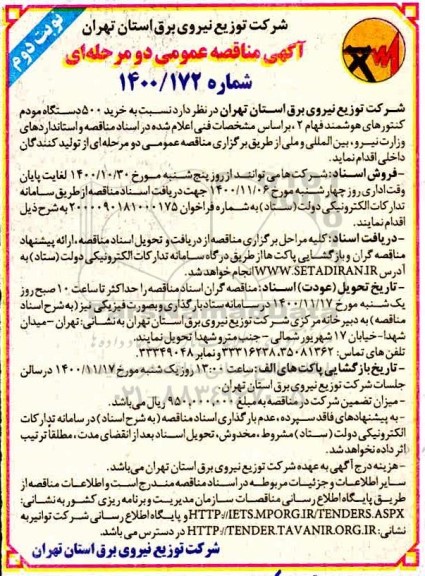 نوبت دوم
شرکت توزیع نیروی برق استان تهران
آگهی مناقصه عمومی دو مرحله‌ای
شماره ۱۴۰۰/۱۷۲
شرکت توزیع نیروی برق استان تهران در نظر دارد نسبت به خرید ۵۰۰ دستگاه مودم
کنتورهای هوشمند فهام ۲، براساس مشخصات فنی اعلام شده در اسناد مناقصه و استانداردهای
وزارت نیرو، بین المللی و ملی از طریق برگزاری مناقصه عمومی دو مرحله‌ای از تولید کنندگان
داخلی اقدام نماید.
-فروش اسناد: شرکت‌ها می توانند از روز پنج شنبه مورخ ۱۴۰۰/۱۰/۳۰ لغایت پایان
وقت اداری روز چهارشنبه مورخ ۱۴۰۰/۱۱/۰۶ جهت دریافت اسناد مناقصه از طریق سامانه
تدارکات الکترونیکی دولت (ستاد) به شماره فراخوان ۲۰۰۰۰۹۰۱۸۱۰۰۰۱۷۵ به شرح ذیل
اقدام نمایند.
-دریافت اسناد: کلیه مراحل برگزاری مناقصه از دریافت و تحویل اسناد مناقصه، ارائه پیشنهاد
مناقصه گران و بازگشایی پاکت ها از طریق درگاه سامانه تدارکات الکترونیکی دولت (ستاد) به
آدرس WWW.SETADIRAN.IR انجام خواهد شد.
-تاریخ تحویل (عودت) اسناد: مناقصه گران اسناد مناقصه را حداکثر تا ساعت ۱۰ صبح روز
یک شنبه مورخ ۱۴۰۰/۱۱/۱۷ در سامانه ستاد بارگذاری و بصورت فیزیکی نیز (به شرح اسناد
مناقصه) به دبیرخانه مرکزی شرکت توزیع نیروی برق استان تهران به نشانی: تهران -میدان
شهدا- خیابان ۱۷ شهریور شمالی - جنب مترو شهدا تحویل نمایند.
تلفن های تماس: ۳۵۰۸۱۳۶۲، ۳۳۳۱۶۲۳۸ و نمابر ۳۳۳۴۹۰۴۸.
-تاریخ بازگشایی پاکت های الف: ساعت ۱۳:۰۰ روز یک شنبه مورخ ۱۴۰۰/۱۱/۱۷ در سالن
جلسات شرکت توزیع نیروی برق استان تهران
- میزان تضمین شرکت در مناقصه به مبلغ ۹۵۰،۰۰۰،۰۰۰ ریال می باشد.
- به پیشنهادهای فاقد سپرده، عدم بارگذاری اسناد مناقصه (به شرح اسناد) در سامانه تدارکات
الکترونیکی دولت (ستاد) مشروط، مخدوش، تحویل اسناد بعد از انقضای مدت، مطلقا ترتیب
اثر داده نخواهد شد.
- هزینه درج آگهی به عهده شرکت توزیع نیروی برق استان تهران می‌باشد.
سایر اطلاعات و جزئیات مربوطه در اسناد مناقصه مندرج است و اطلاعات مناقصه از
طریق پایگاه اطلاع رسانی مناقصات سازمان مدیریت و برنامه ریزی کشور به نشانی:
HTTP://IETS.MPORG.IR/TENDERS.ASPX و پایگاه اطلاع رسانی شرکت توانیر به
نشانی: HTTP://TENDER.TAVANIR.ORG.IR در دسترس می باشد.
شرکت توزیع نیروی برق استان تهران